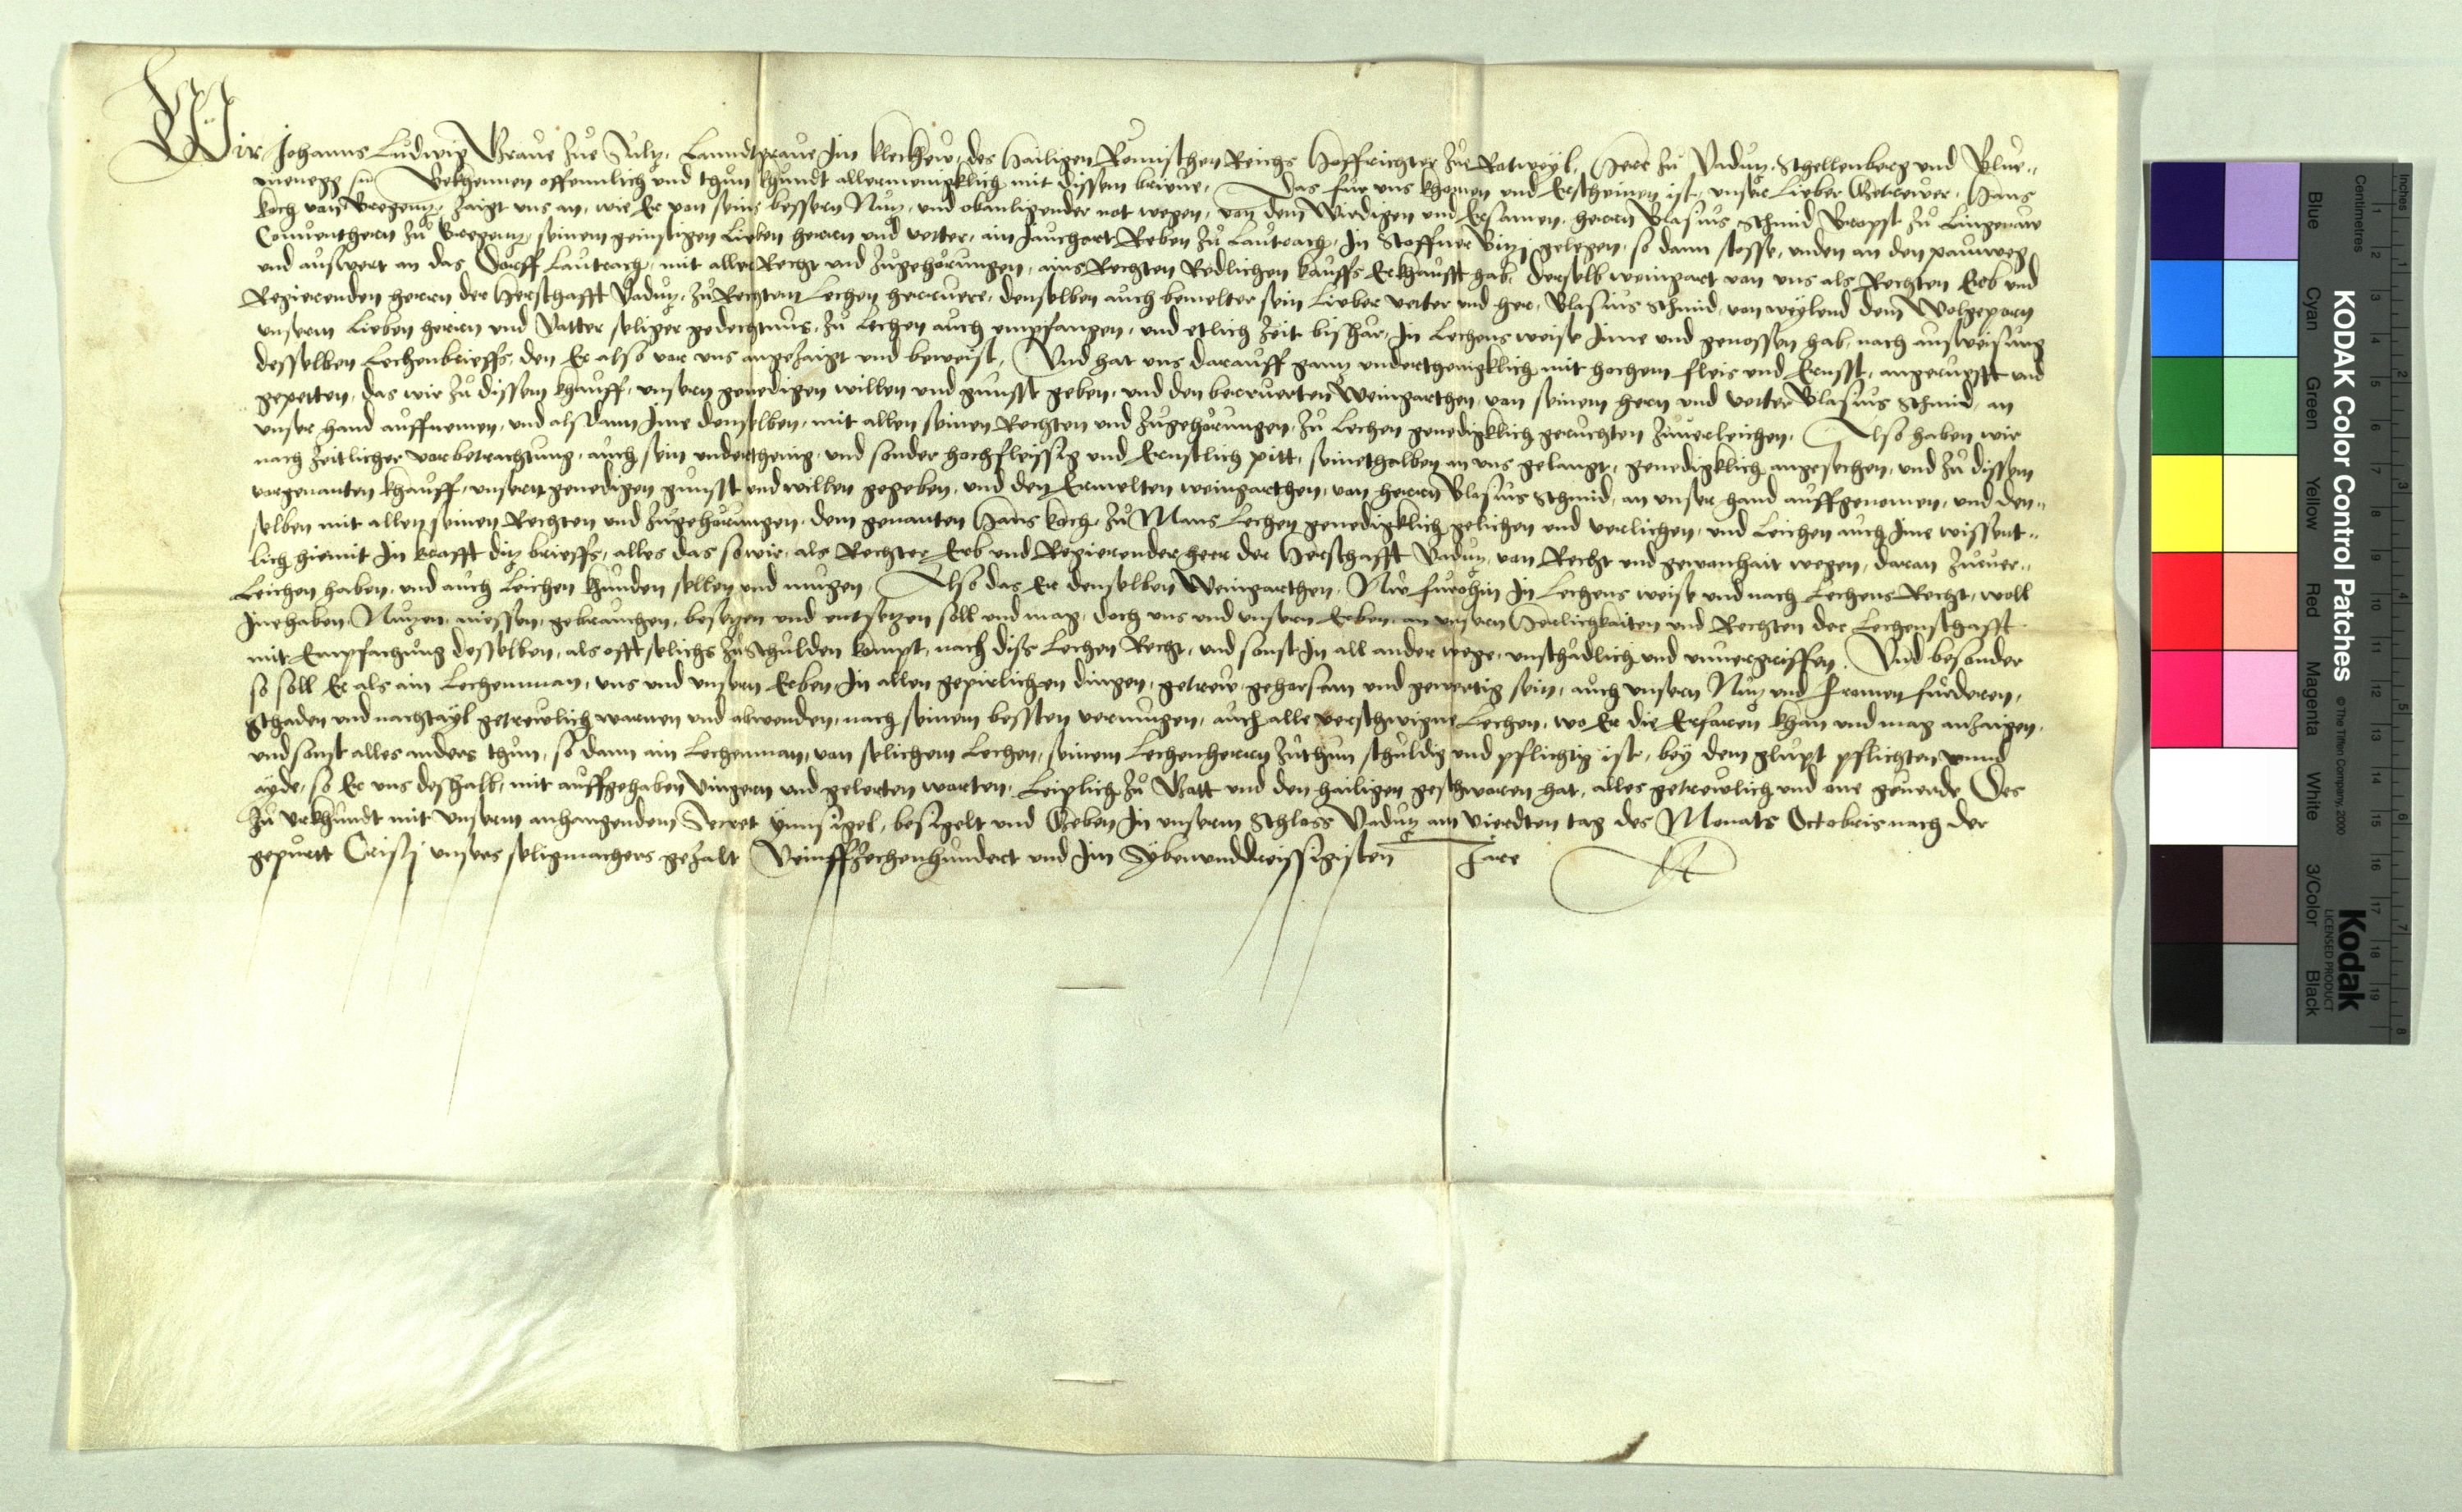 Wir Johanns Ludwig Graue zue Sultz, Lanndtgraue Im kleckew, des Hailigen Römischen Reichs Hoffrichter zu Rotweyl, Herr zu Vadutz, Schellenberg und Blue-
menegg Bekhennen offennlich und thun khundt allermenigklich mit dissem brieue, Das fur uns khomen und Erscheinen ist, unser Lieber Getreuer, Hans
koch von Bregentz, zaigt uns an, wie Er von seins bessern Nutz, und obanligender not wegen, von dem Wirdigen und Ersamen, herrn Blasius Schmid Bropst zu Lingenaw
Conuenthern zu Bregentz, seinem geinstigen Lieben herrn und vetter, ain Juchart Reben zu Lautrach, In Stoffner Bitzi gelegen, so dann stosse, unden an den pauweg
und aufwert an das Dorff Lautrach, mit aller Recht und Zugehörungen, ains Rechten Redlichen kauffs Erkhaufft hab, derselb weingart von uns als Rechten Erb und
Regierenden herrn der Herschafft Vadutz, zu Rechtem Lechen herruere, denselben auch bemelter sein Lieber vetter und her, Blasius Schmid, von weylend dem Wolgeporn
unserm Lieben herrn und Vatter seliger gedechtnus, zu Lechen auch empfangen, und etlich Zeit bishär, In Lechens weise Inne und genossen hab, nach ausweisung
desselben Lechenbrieffs, den Er also vor uns angezaigt und beweist, Und hat uns darauff gantz underthenigklich mit hochem fleis und Ernsst, angeruefft und
gepetten, das wir zu dissem khauff, unsern genedigen willen und gunsst geben, und den berruerten Weingarthen, von seinem hern und vetter Blasius Schmid, an
unser hand auffnemen, und alsdann Ime denselben, mit allen seinen Rechten und Zugehörungen, zu Lechen genedigklich geruchten zuuerleichen, Also haben wir
nach zeitlicher vorbetrachtung, auch sein underthenig, und sonder hochfleissig und Ernstlich pitt, seinethalben an uns gelangt, genedigklich angesechen, und zu dissem
vorgenanten khauff, unsern genedigen gunsst und willen gegeben, und den Ermelten weingarthen, von herrn Blasius Schmid, an unser hand auffgenomen, und den-
selben mit allen seinen Rechten und Zugehörungen, dem genanten Hans koch, zu Mans Lechen genedigklich gelichen und verlichen, und Leichen auch Ime wissent-
lich hiemit In krafft ditz brieffs, alles das so wir, als Rechter Erb und Regierender heer der Herschafft Vadutz, von Recht und gewonhait wegen, daran zuuer-
Leichen haben, und auch Leichen khunden sollen und mugen, Also das Er denselben Weingarthen, Nu furohin In Lechens weise und nach Lechens Recht, woll
Innhaben, Nutzen, niessen, gebrauchen, besetzen und entsetzen soll und mag, doch uns und unsern Erben, an unsern Herlichkaiten und Rechten der Lechenschafft
mit Empfachung desselben, als offt selichs zu schulden kompt, nach diss Lechen Recht, und sonst In all ander wege, unschädlich und unuergriffen. Und besonder
so soll Er als ain Lechenman, uns und unsern Erben, In allen gepirlichen dingen, getrew, gehorsam und gewertig sein, auch unsern Nutz und fromen furderen,
schaden und nachtayl getrewlich warnen und abwenden, nach seinem bessten vermugen, auch alle verschwigne Lechen, wo Er die Erfaren khan und mag anzaigen,
und sonst alles anders thun, so dann ain Lechenman, von selichem Lechen, seinem Lechenherrn zuthun schuldig und pflichtig ist, bey dem glupt pflichten unnd
ayde, so Er uns deshalb, mit auffgehaben Vingern und gelerten worten, Leiplich zu Gott und den hailigen geschworen hat, alles getrewlich und one geuerde Des
zu urkhundt mit unserm anhangendem Secret Innsigel, besigelt und Geben In unserm Schloss Vadutz am vierdten tag des Monats Octobris nach der
gepurtt Cristi unsers seligmachers gezalt Veinffzechenhundert und Im Sybenunddreissigisten Jare
KODAK Color Control Patches © The Tiffen Company, 2000
Kodak LICENSED PRODUCT
Blue Cyan Green Yellow Red Magenta White 3/Color Black
Centimetres 1 2 3 4 5 6 7 8 9 10 11 12 13 14 15 16 17 18 19
Inches 1 2 3 4 5 6 7 8